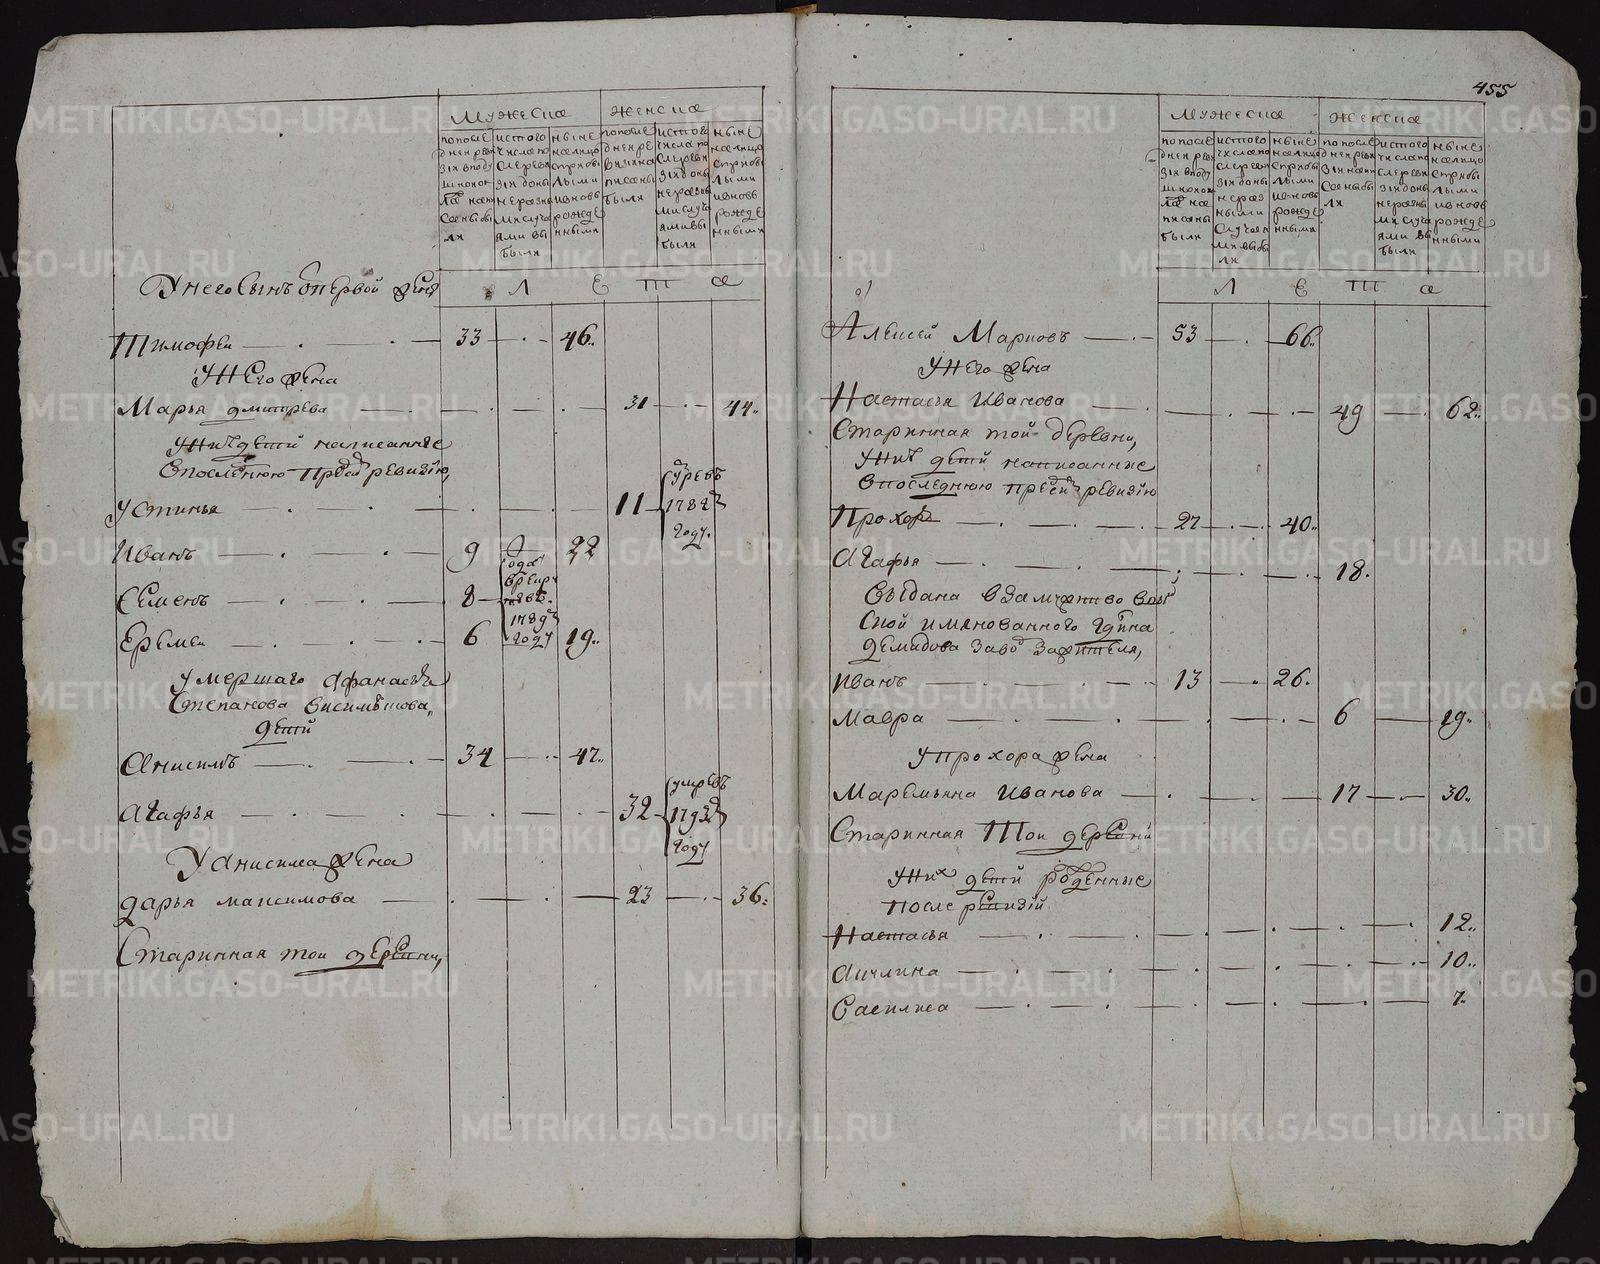 455
Мужеска
Женска
попосле
днен реви
зіи вподу
шномок
ла нап
саны бы
ли
истого
числа по
слереви
зіи доны
не разны
ми случа
ями вы
были
ныне
налицо
сприбы
лыми
ивновь
рожде
нными
попосле
днен ре
визіи на
писаны
были
истого
числа по
слереви
зіи доны
не разны
ми случа
ями вы
были
ныне
налицо
сприбы
лыми
ивновь
рожде
нными
Л Е Т А
У него сынъ от первой жены
Тимофеи 33 46
У Него жена
Марья дмитрева 31 44
У Них детй написанные
впоследнюю пред сей ревизїю,
Устинья 11 умре въ 1782м году.
Иванъ 9 22
Семенъ 8
1789м году
Еремеи 6 19
Умершаго афанасья
Степанова
детй
Анисимъ 34 47
Агафья 32 умре въ 1793м году
У анисима жена
дарья максимова 23 36
Старинная тои деревни,
Мужеска
Женска
попосле
днен реви
зіи вподу
на
писаны
были
истого
числа по
слереви
зіи доны
не раз
ными
случая
ми выбы
ли
ныне
налицо
сприбы
лыми
ивновь
рожде
нными
попосле
днен реви
зіи нап
саны бы
ли
истого
числа по
слереви
зіи доны
не разны
ми случа
ями вы
были
ныне
налицо
сприбы
лыми
ивновь
рожде
нными
Л Е Т А
Алексей Марковъ 53 66
У Него жена
Настасья Иванова 49 62
Старинная той деревни,
У Них детй написанные
впоследнюю пред сей ревизїю
Прохоръ 27 40
Агафья 18
Выдана в замужство
имянованного Гдина
демидова завод жителя,
Иванъ 13 26
Мавра 6 19
У прохора жена
Маремьяна Иванова 17 30
Старинная Тои деревни
У них детй рожденные
После ревизій
Настасья 12
Акулина 10
Васиlиса 7